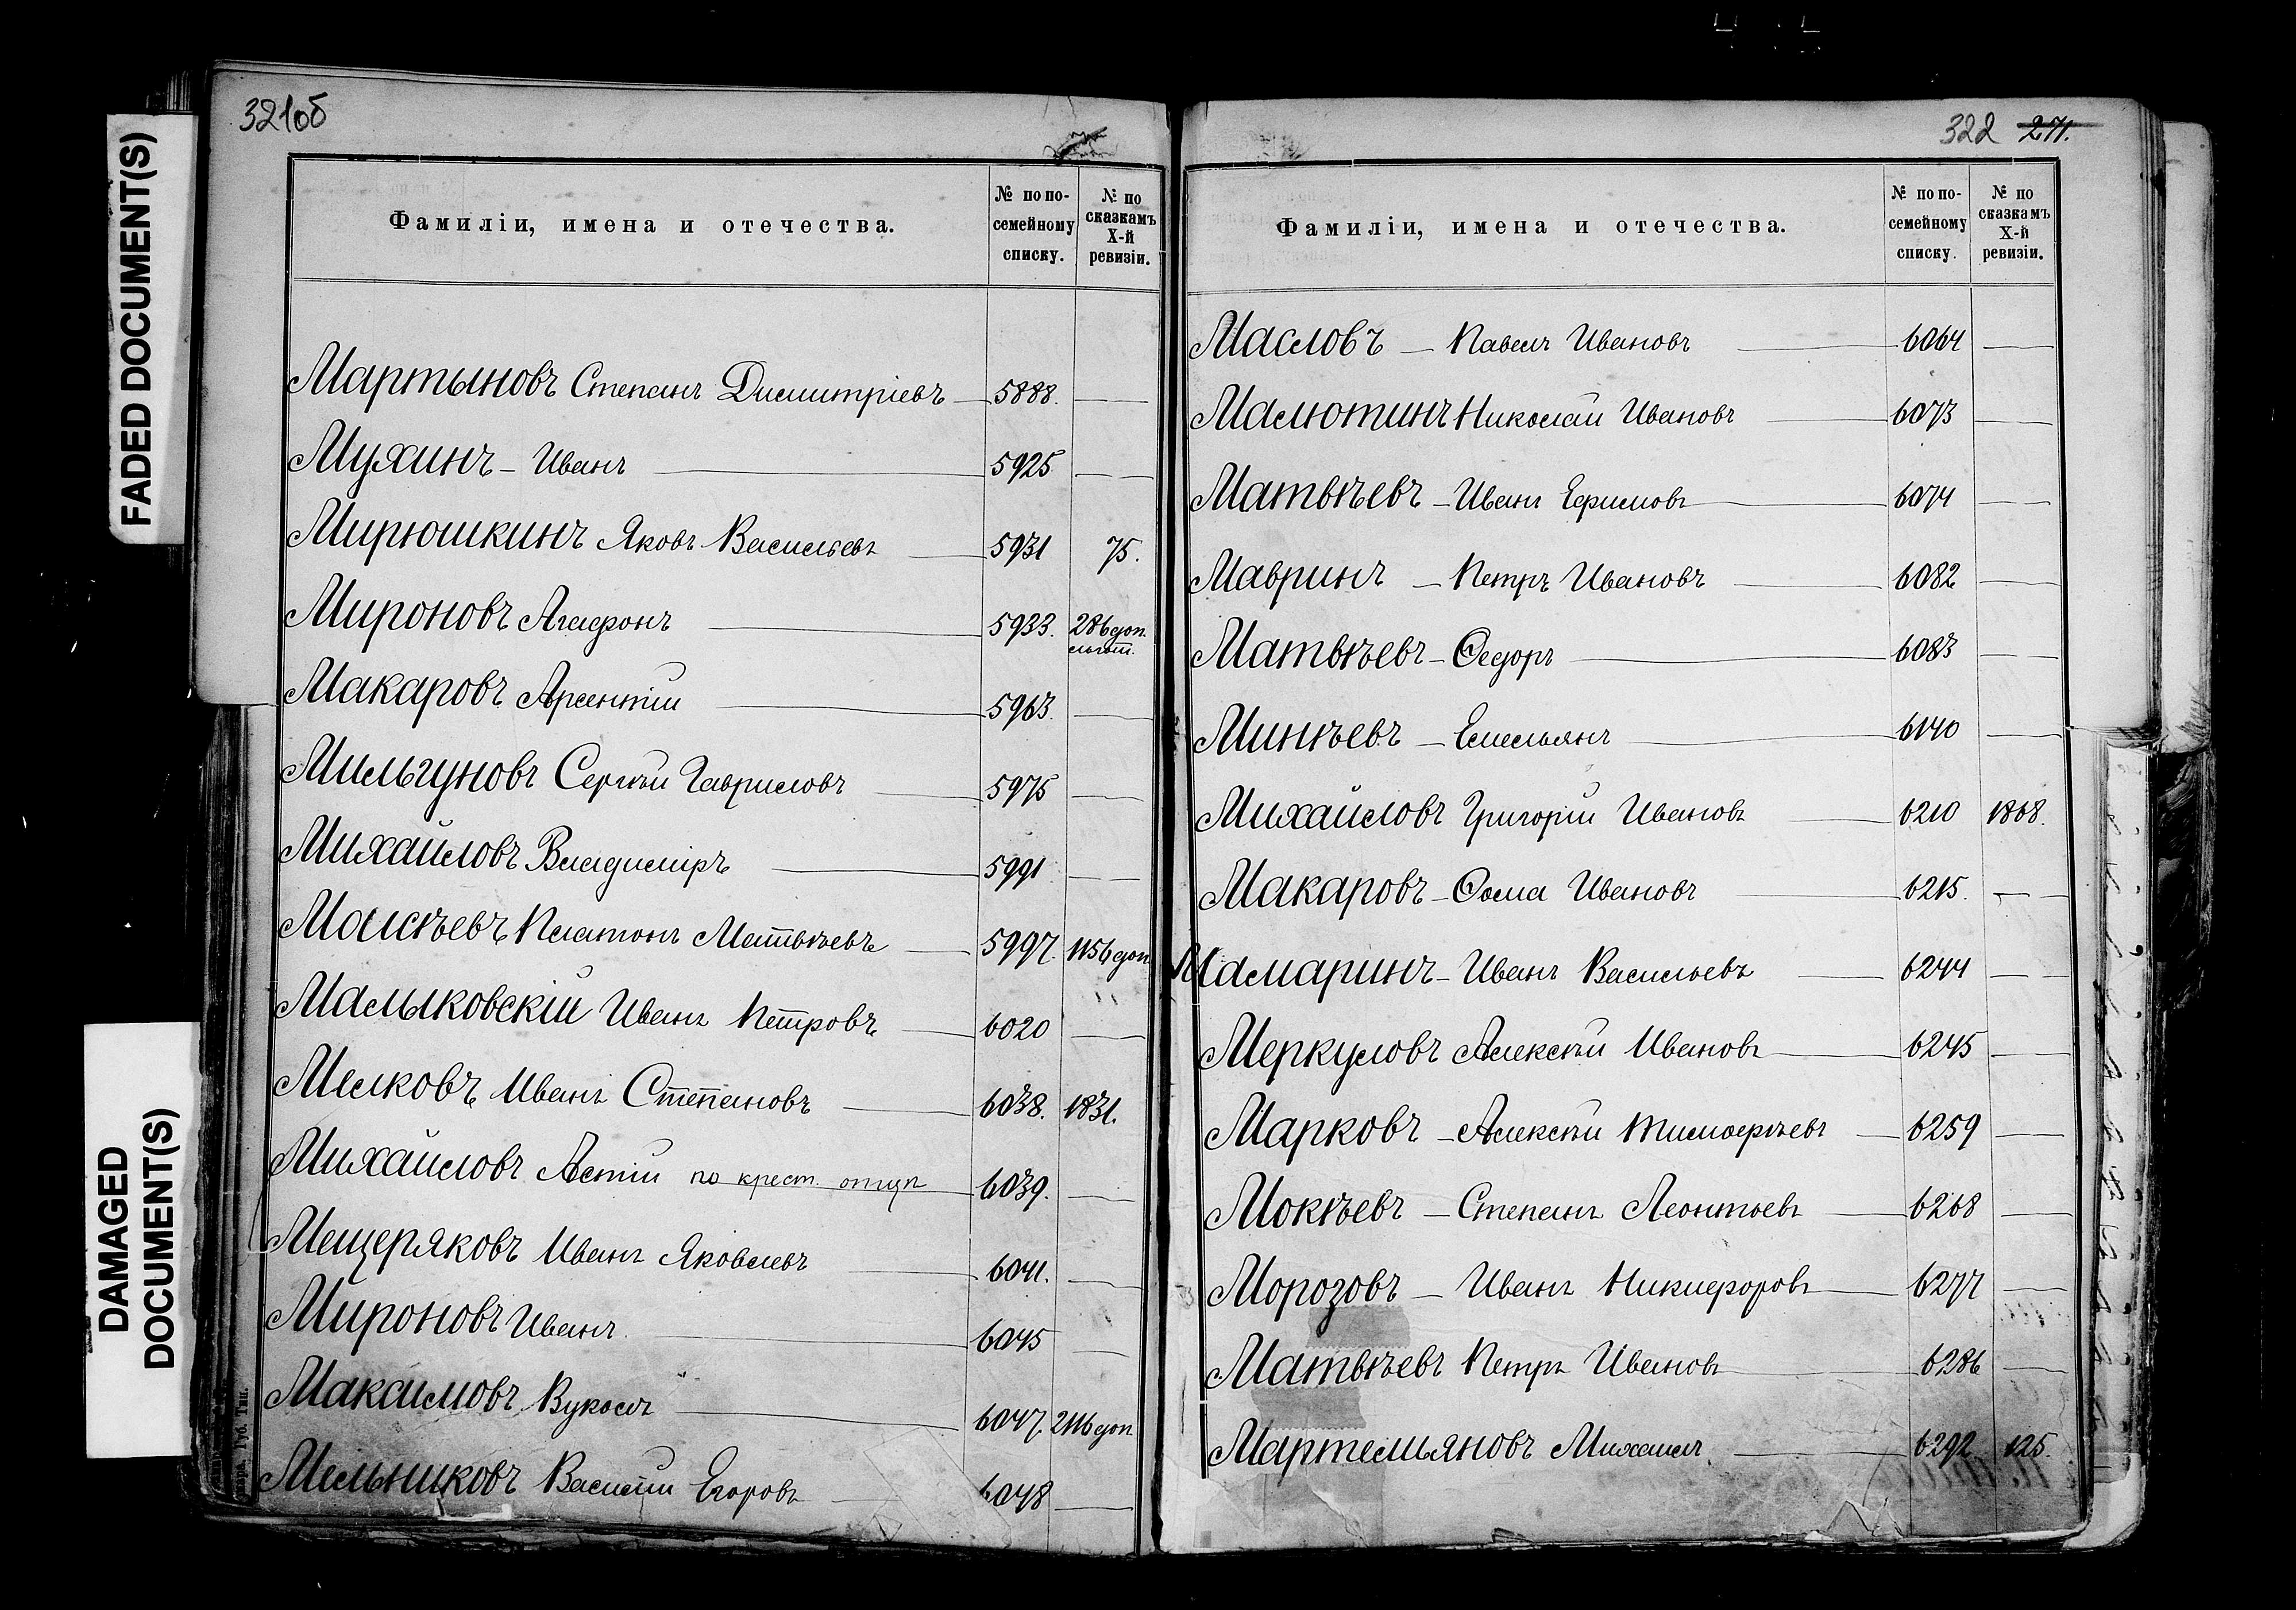 FADED DOCUMENT(S)
DAMAGED
DOCUMENT(S)
321об
Фамиліи, имена и отечества.
№ по по-
семейному
списку.
№ по
сказкамъ
X-й
ревизіи.
Мартыновъ Степанъ Димитріевъ 5888.
Мухинъ - Иванъ 5925
Мирюшкинъ Яковъ Васильевъ 5931 75.
Мироновъ Агафонъ 5933. 286 доп.
Макаровъ Арсентій 5963.
Мильгуновъ Сергѣй Гавриловъ 5975
Михайловъ Владиміръ 5991
Моисѣевъ Платонъ Матвѣевъ 5997. 1156 доп
Малыковскій Иванъ Петровъ 6020
Мелковъ Иванъ Степановъ 6038. 1831.
Михайловъ Астій по крест. отцу 6039.
Мещеряковъ Иванъ Яковлевъ 6041.
Мироновъ Иванъ 6045
Максимовъ Вуколъ 6047. 2116 доп
Мельниковъ Василій Егоровъ 6048
322 271.
Фамиліи, имена и отечества.
№ по по-
семейному
списку.
№ по
сказкамъ
X-й
ревизіи.
Масловъ - Павелъ Ивановъ 6064
Малютинъ Николай Ивановъ 6073
Матвѣевъ - Иванъ Ефимовъ 6074
Мавринъ - Петръ Ивановъ 6082
Матвѣевъ - Ѳедоръ 6083
Минѣевъ - Емельянъ 6140
Михайловъ Григорій Ивановъ 6210 1868.
Макаровъ - Ѳома Ивановъ 6215.
Мамаринъ - Иванъ Васильевъ 6244
Меркуловъ Алексѣй Ивановъ 6245
Марковъ - Алексѣй Тимофѣевъ 6259
Мокѣевъ - Степанъ Леонтьевъ 6268
Морозовъ - Иванъ Никифоровъ 6277
Матвѣевъ Петръ Ивановъ 6286
Мартемьяновъ Михаилъ 6292 125.